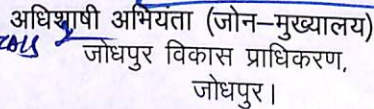 अधिशाषी अभियंता (जोन–मुख्यालय)
जोधपुर विकास प्राधिकरण,
जोधपुर।